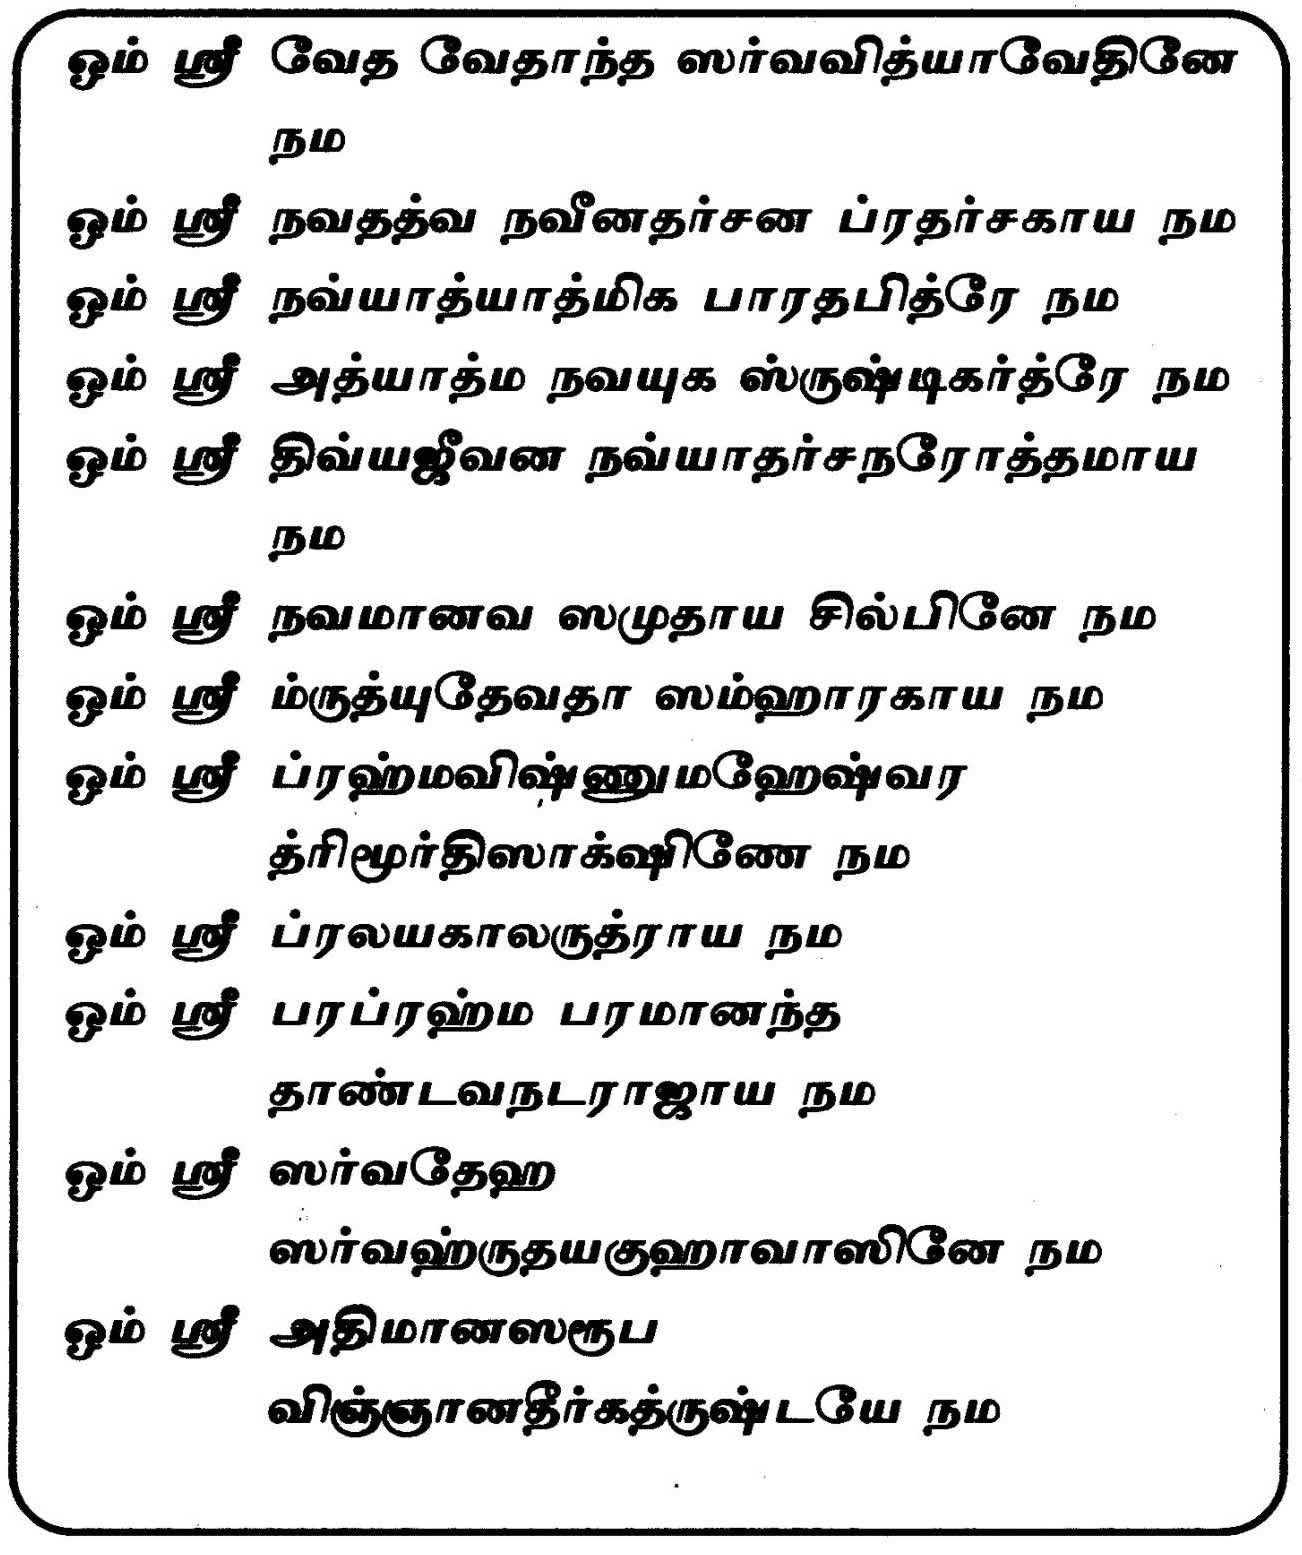 ஓம் ஸ்ரீ வேத வேதாந்த ஸர்வவித்யாவேதினே
நம
ஓம் ஸ்ரீ நவதத்வ நவீனதர்சன ப்ரதர்சகாய நம
ஓம் ஸ்ரீ நவ்யாத்யாத்மிக பாரதபித்ரே நம
ஓம் ஸ்ரீ அத்யாத்ம நவயுக ஸ்ருஷ்டிகர்த்ரே நம
ஓம் ஸ்ரீ திவ்யஜீவன நவ்யாதர்சநரோத்தமாய
நம
ஓம் ஸ்ரீ நவமானவ ஸமுதாய சில்பினே நம
ஓம் ஸ்ரீ ம்ருத்யுதேவதா ஸம்ஹாரகாய நம
ஓம் ஸ்ரீ ப்ரஹ்மவிஷ்ணுமஹேஷ்வர
த்ரிமூர்திஸாக்ஷிணே நம
ஓம் ஸ்ரீ ப்ரலயகாலருத்ராய நம
ஓம் ஸ்ரீ பரப்ரஹ்ம பரமானந்த
தாண்டவநடராஜாய நம
ஓம் ஸ்ரீ ஸர்வதேஹ
ஸர்வஹ்ருதயகுஹாவாஸினே நம
ஓம் ஸ்ரீ அதிமானஸரூப
விஞ்ஞானதீர்கத்ருஷ்டயே நம